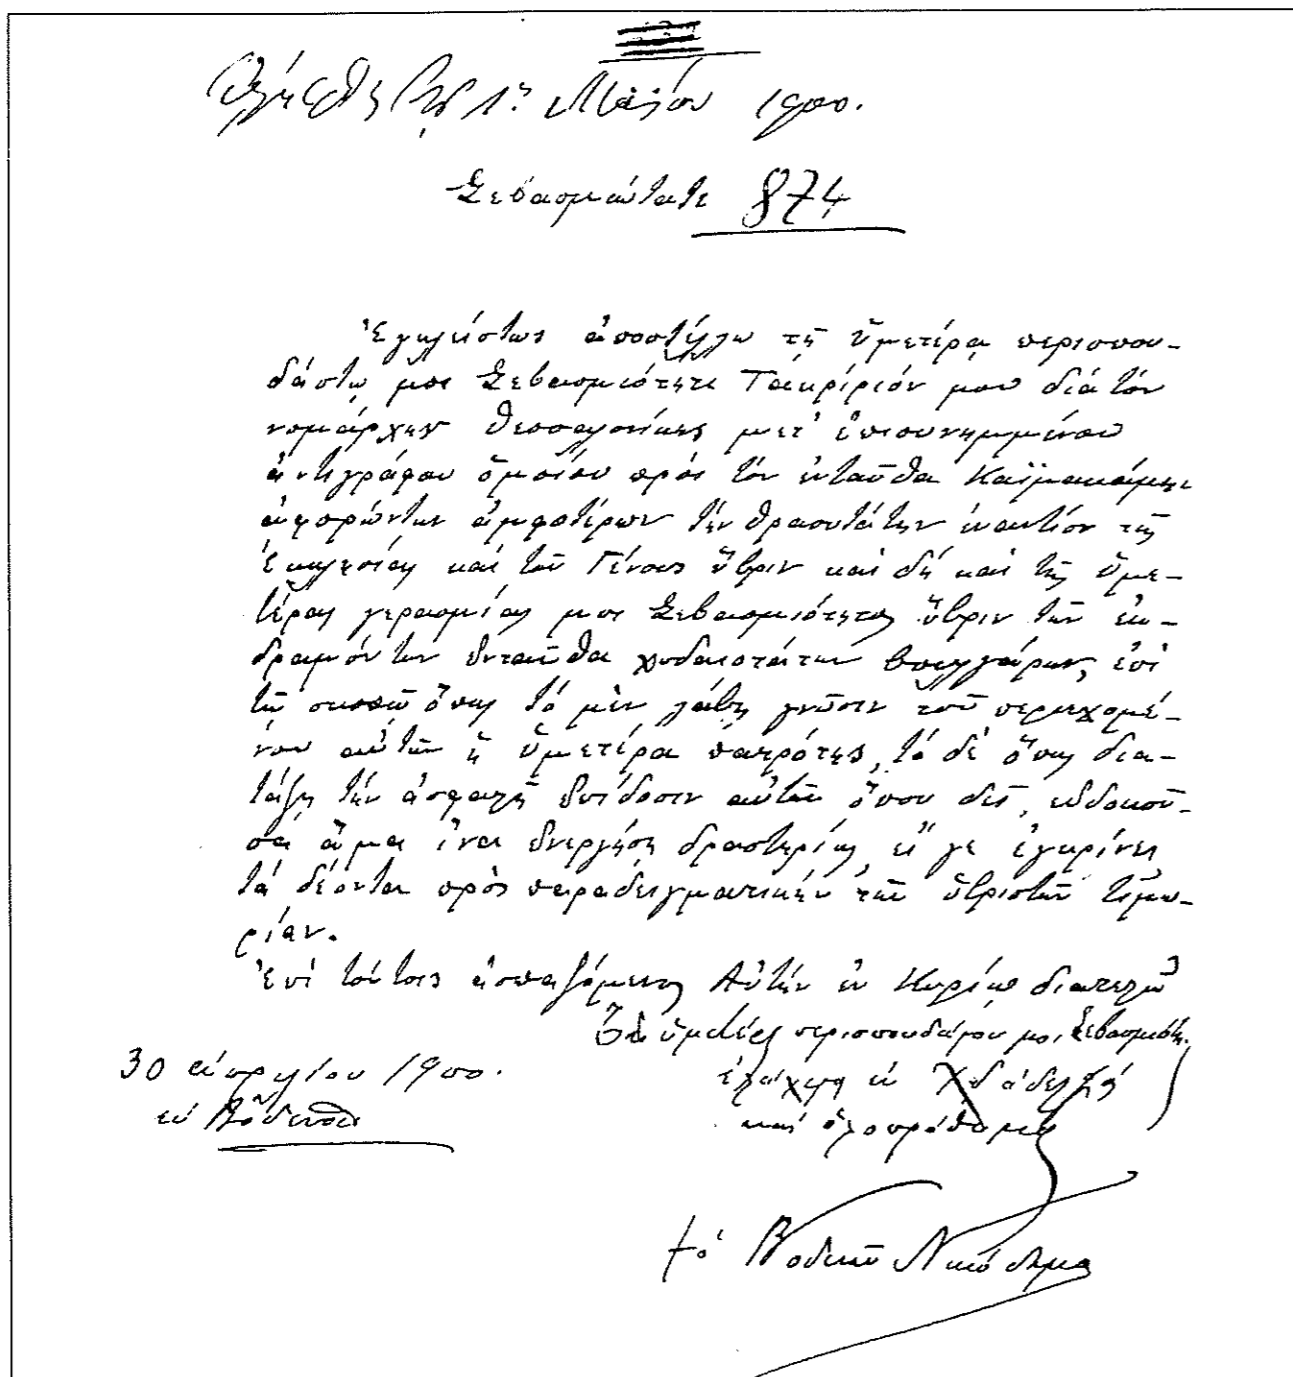 Ἐλήφθη τῇ 1ῃ Μαΐου 1900.
Σεβασμιώτατε 874
Ἐγκλείστως ἀποστέλλω τῇ ὑμετέρᾳ περισπου-
δάστῳ μοι Σεβασμιότητι Τακρίριόν μου διὰ τὸν
νομάρχην Θεσσαλονίκης μετ' ἐπισυνημμένου
ἀντιγράφου ὁμοίου πρὸς τὸν ἐνταῦθα Καϊμακάμην
ἀφορώντων ἀμφοτέρων τὴν θρασυτάτην ἐναντίον τῆς
Ἐκκλησίας καὶ τοῦ Γένους ὕβριν καὶ δὴ καὶ τῆς ὑμε-
τέρας γερασμίας μοι Σεβασμιότητος ὕβριν τῶν ἐκ-
δραμόντων ἐνταῦθα χυδαιοτάτων Βουλγάρων, ἐπὶ
τῷ σκοπῷ ὅπως τὸ μὲν λάβῃ γνῶσιν τοῦ περιεχομέ-
νου αὐτῶν ἡ ὑμετέρα πανιερότης, τὸ δὲ ὅπως δια-
τάξῃ τὴν ἀσφαλῆ ἐπίδοσιν αὐτῶν ὅπου δεῖ, εὐδοκοῦ-
σα ἅμα ἵνα ἐνεργήσῃ δραστηρίως, εἴ γε ἐγκρίνει
τὰ δέοντα πρὸς παραδειγματικὴν τῶν ὑβριστῶν τιμω-
ρίαν.
Ἐπὶ τούτοις ἀσπαζόμενος Αὐτὴν ἐν Κυρίῳ διατελῶ
Τῆς ὑμετέρας περισπουδάστου μοι Σεβασμιότητος
30 ἀπριλίου 1900. ἐλάχιστος ἐν Χῷ ἀδελφὸς
ἐν Βοδενοῖς καὶ ὁλοπρόθυμος
† ὁ Βοδενῶν Νικόδημος